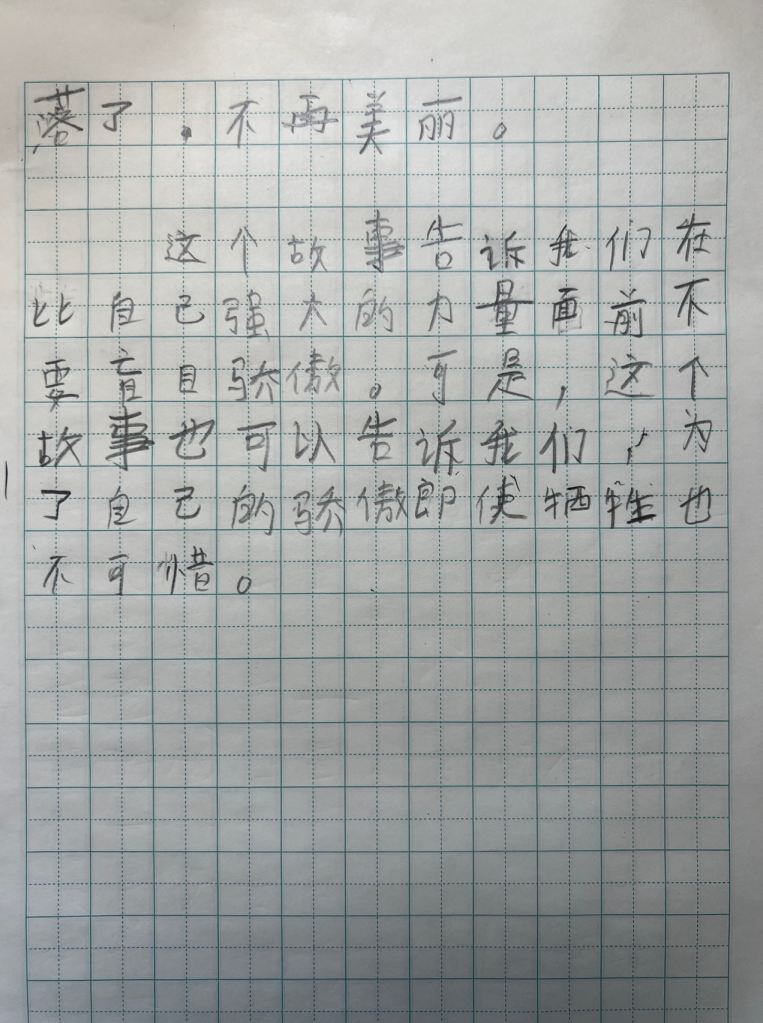 落了，不再美丽。
这个故事告诉我们在
比自己强大的力量面前不
要盲目骄傲。可是，这个
故事也可以告诉我们，为
了自己的骄傲即使牺牲也
不可惜。